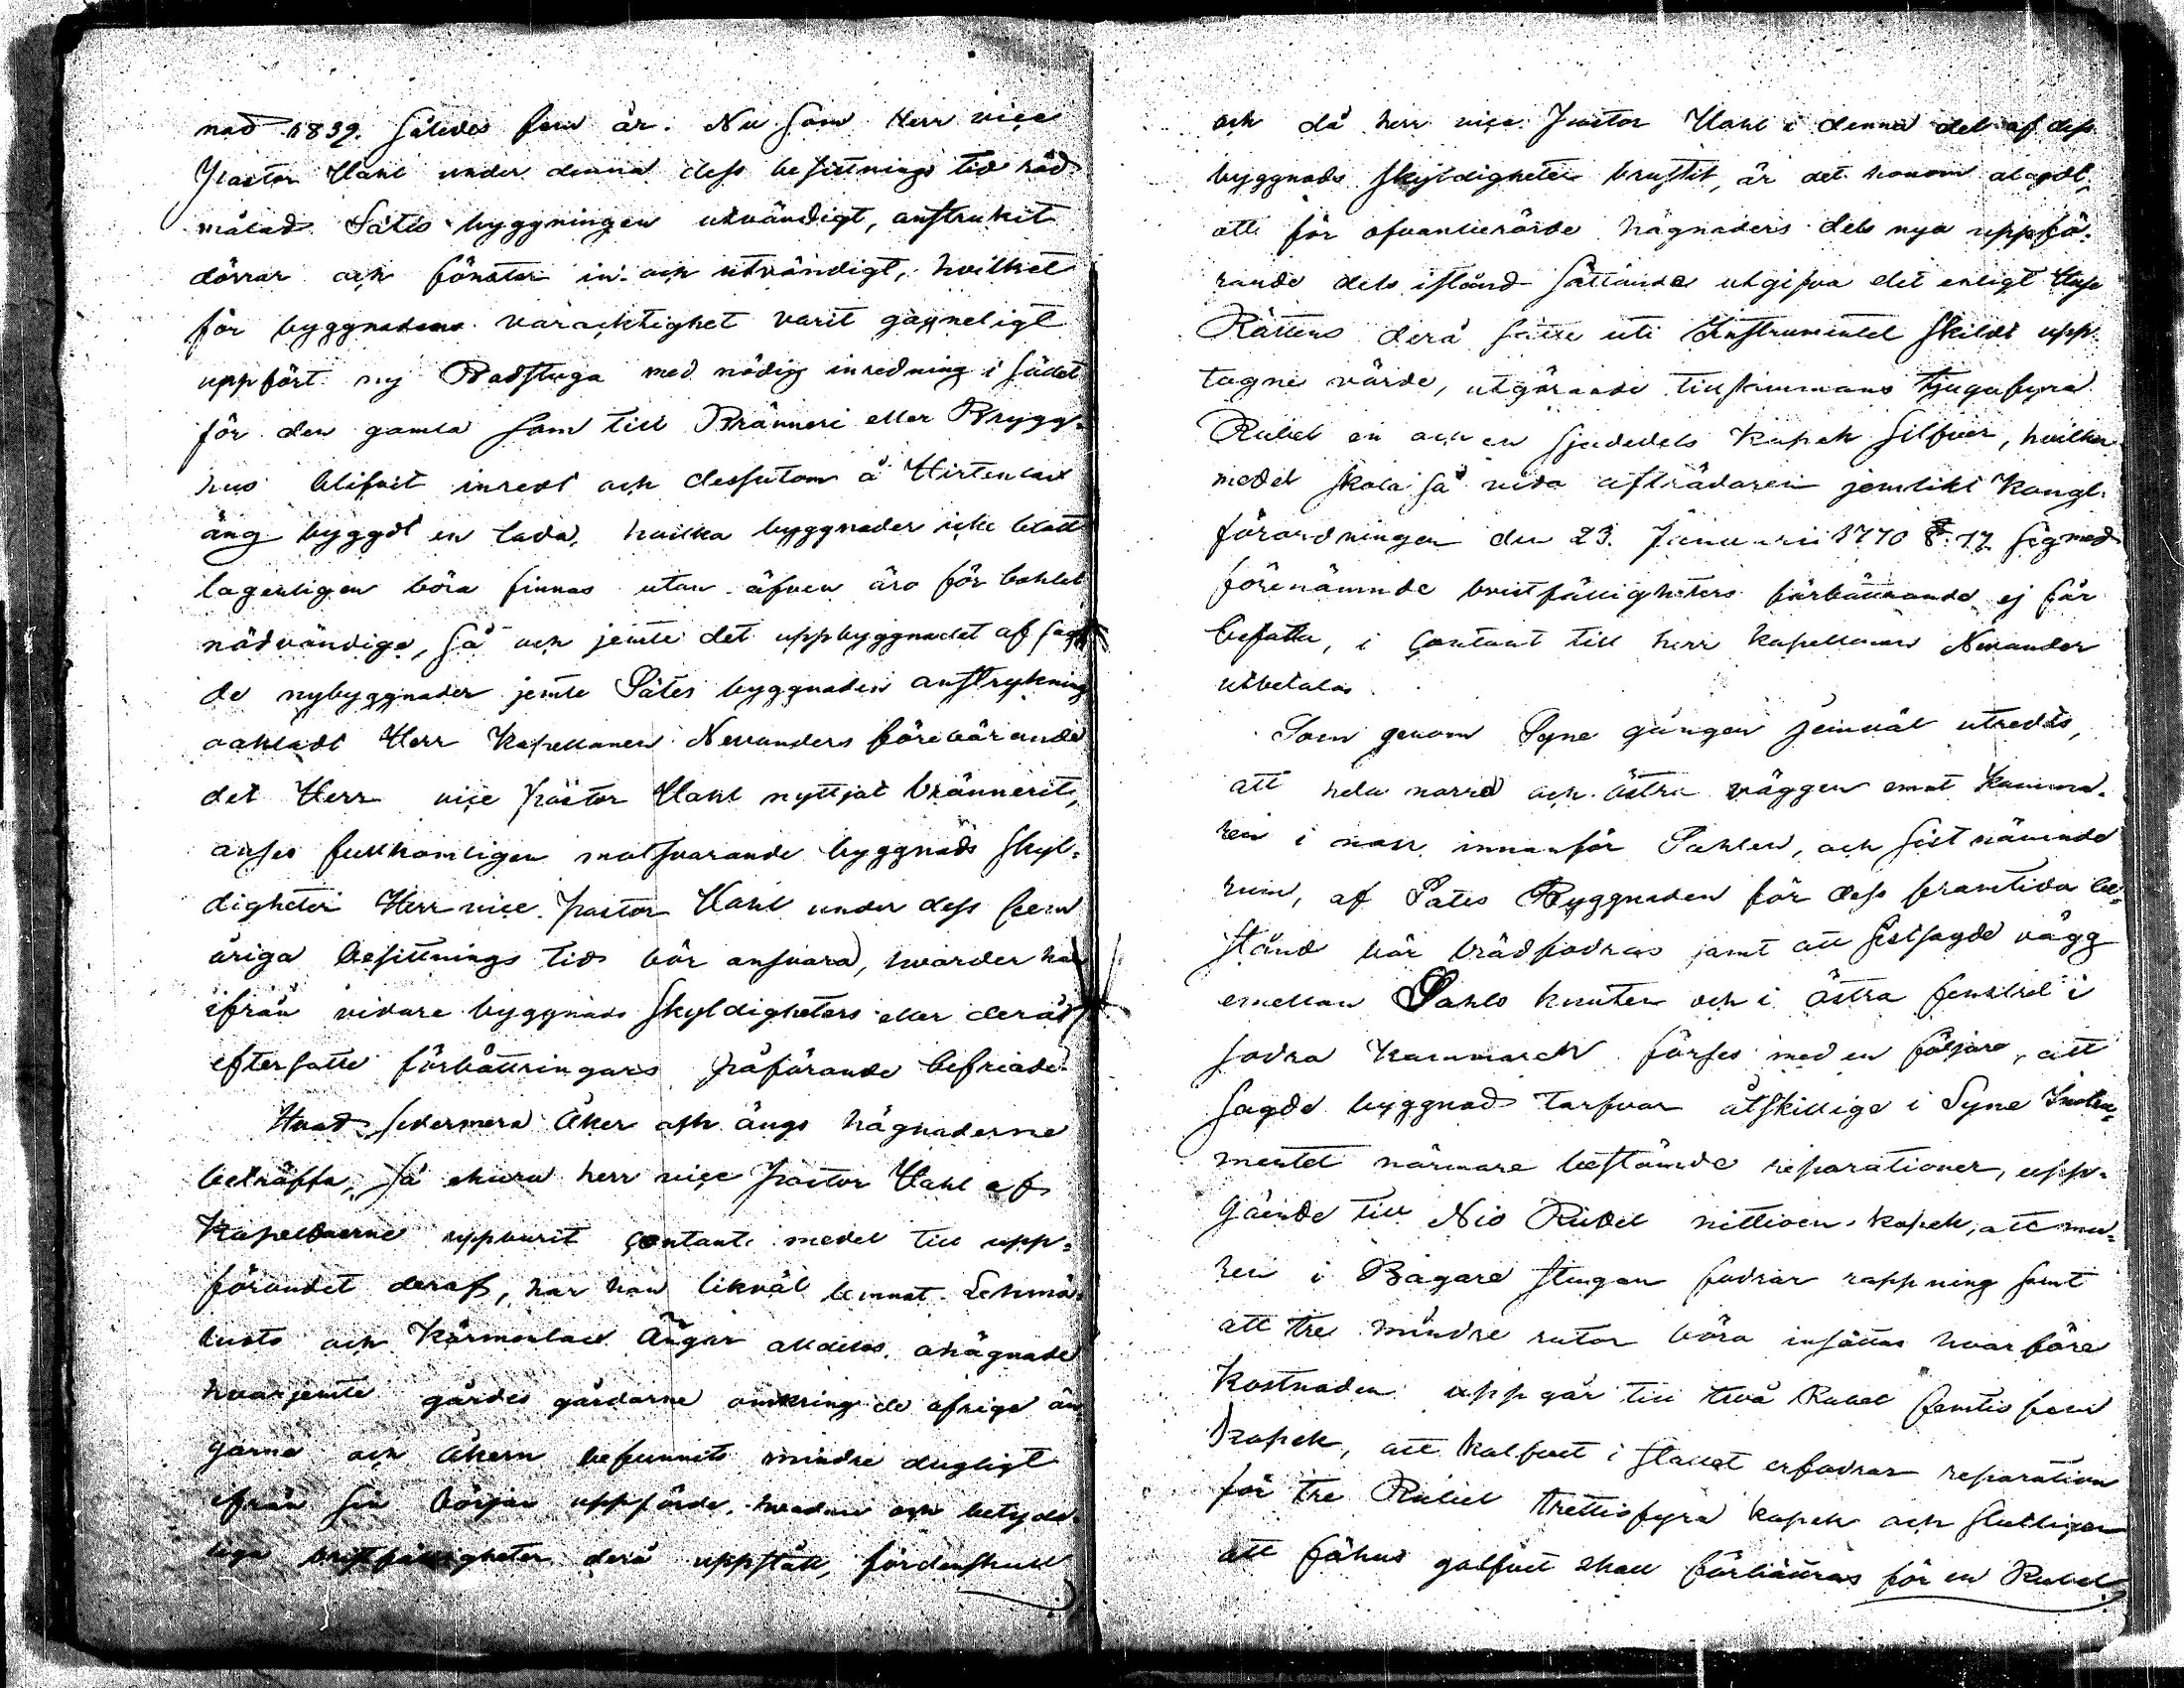 nad 1839. således fem år. Nu som Herr vice
Pastor Wahl under denna dess besittnings tid röd-
målad Sätes byggningen utvändigt, anstrukit
dörrar och fönster in- och utvändigt, hvilket
för byggnadens varacktighet varit gagneligt
uppfört ny Badstuga med nödig inredning i stället
för den gamla som till Bränneri eller Brygg-
hus blifvit inredt och dessutom å Hirtenlax
äng byggdt en lada, hvilka byggnader icke blott
lagenligen böra finnas utan äfven äro för bohlet
nödvändige, så och jemte det uppbyggnadet af sag-
de nybyggnader jemte Sätes byggnadens anstrykning
oaktadt Herr Kapellanen Nevanders förebärande
det Herr vice pastor Wahl nyttjat bränneriet,
anses fullkomligen motsvarande byggnads skyl-
digheter Herr vice pastor Wahl under dess fem
åriga besittnings tid bör ansvara, hvarder han
ifrån vidare byggnads skyldigheters eller deraf
eftersatte förbättringars påförande befriades
Hvad sedermera Åker och ängs hägnaderne
beträffa, så ehuru herr vice pastor Wahl af
Kapelboerne uppburit contant medel till upp-
förandet deraf, har han likväl lemnat
och Ängar alldeles ohägnade
hvarjemte gärdes gårdarne omkring de öfrige än-
garne och åkern befunnits mindre dugligt
ifrån sin början uppförde, hvadan och betyde-
liga bristfälligheter derå uppstått, fördenskull
och då herr vice Pastor Wahl i denna del af dess
byggnads skyldigheter brustit, är det honom ålagdt,
att för ofvanberörde hägnaders dels nya uppfö-
rande dels istånd sättande utgifva det enligt Husesyns
Rättens derå satte uti Instrumentet skildt upp-
tagne värde, utgörande tillsammans tjugufyra
Rubel en och en sjudedels Kopek silfver, hvilka
medel skola så vida afträdaren jemlikt Kongl.
förordningen den 23. Januarii 1770 §. 17 sig med
förenämnde bristfälligheters förbättrande ej får
befatta, i contant till herr Kapellanen Nevander
utbetalas.
Som genom Syne gången jemväl utredts,
att hela norra och östra väggen emot Kamma-
ren i norr innanför Sahlen, och sist nämnde
rum, af Sätes Byggnaden för dess framtida be-
stånd bör brädfodras samt att sistsagde vägg
emellan Sahls knuten och i östra fenstret i
södra Kammaren förses med en följare, att
sagde byggnad tarfvar åtskillige i Syne Instru-
mentet närmare bestämde reparationer, upp-
gående till Nio Rubel nittioen kopek, att mu-
ren i Bagare stugan fodrar rappning samt
att tre mindre rutor böra insättas hvarföre
Kostnaden uppgår till två Rubel femtio fem
kopek, att kalfvet i stallet erfodrar reparation
för tre Rubel trettiofyra kopek och slutligen
att fähus golfvet skall förbättras för en Rubel